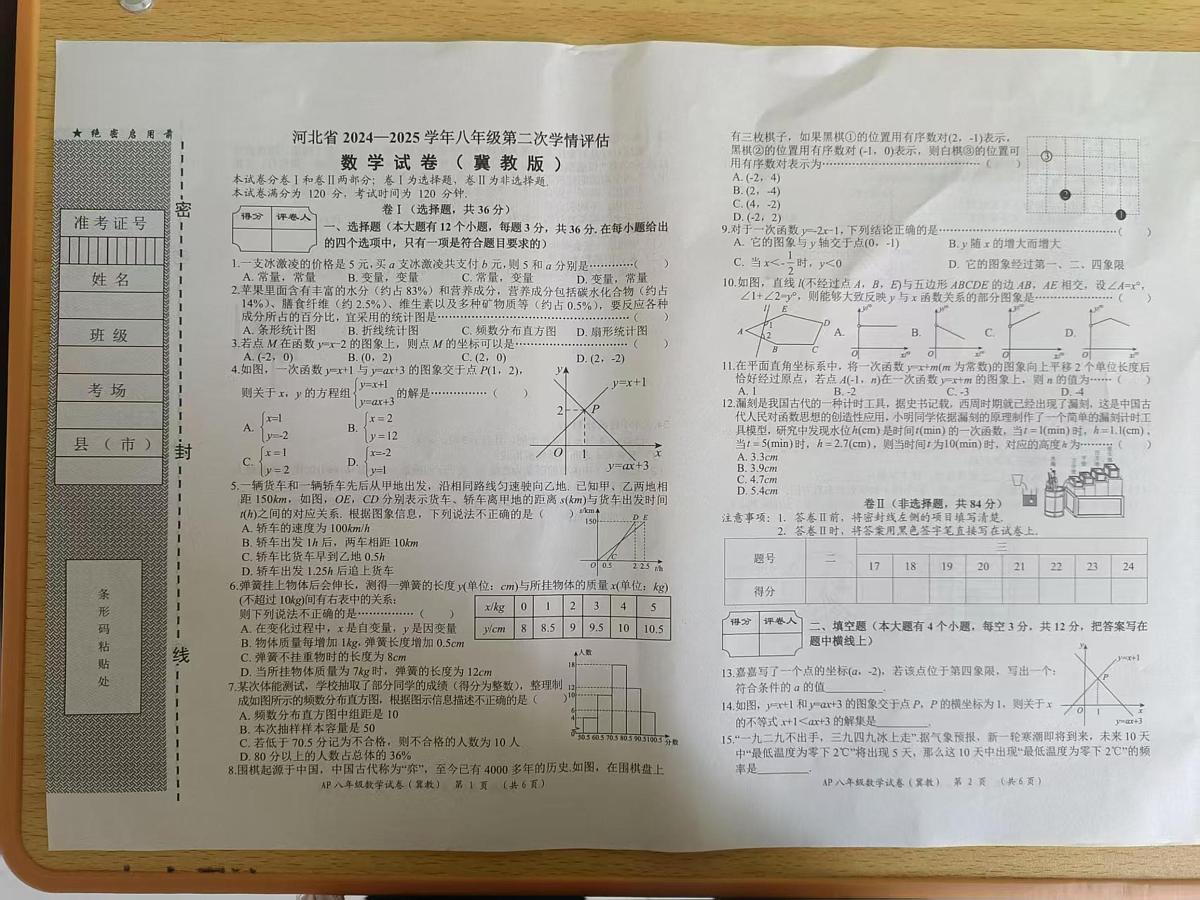 ★ 绝密启用前
准考证号
姓名
班级
考场
县（市）
条形码粘贴处
密
封
线
河北省 2024—2025 学年八年级第二次学情评估
数学试卷（冀教版）
本试卷分卷Ⅰ和卷Ⅱ两部分；卷Ⅰ为选择题，卷Ⅱ为非选择题.
本试卷满分为 120 分，考试时间为 120 分钟.
卷Ⅰ（选择题，共 36 分）
得分 评卷人
一、选择题（本大题有 12 个小题，每题 3 分，共 36 分.在每小题给出
的四个选项中，只有一项是符合题目要求的）
1.一支冰激凌的价格是 5 元,买 a 支冰激凌共支付 b 元,则 5 和 a 分别是…………（ ）
A. 常量，常量 B. 变量，变量 C. 常量，变量 D. 变量，常量
2.苹果里面含有丰富的水分（约占 83%）和营养成分，营养成分包括碳水化合物（约占
14%）、膳食纤维（约 2.5%）、维生素以及多种矿物质等（约占 0.5%），要反应各种
成分所占的百分比，宜采用的统计图是……………………………………（ ）
A. 条形统计图 B. 折线统计图 C. 频数分布直方图 D. 扇形统计图
3.若点 M 在函数 y=x−2 的图象上，则点 M 的坐标可以是……………………（ ）
A. (-2，0) B. (0，2) C. (2，0) D. (2，-2)
4.如图，一次函数 y=x+1 与 y=ax+3 的图象交于点 P(1，2)，
则关于 x，y 的方程组 { y=x+1 y=ax+3 的解是……………（ ）
A. { x=1 y=-2 B. { x = 2 y = 12
C. { x = 1 y = 2 D. { x=-2 y=1
y
y=x+1
2 P
O 1 x
y=ax+3
5.一辆货车和一辆轿车先后从甲地出发，沿相同路线匀速驶向乙地. 已知甲、乙两地相
距 150km，如图，OE，CD 分别表示货车、轿车离甲地的距离 s(km)与货车出发时间
t(h)之间的对应关系. 根据图象信息，下列说法不正确的是（ ）
A. 轿车的速度为 100km/h
B. 轿车出发 1h 后，两车相距 10km
C. 轿车比货车早到乙地 0.5h
D. 轿车出发 1.25h 后追上货车
s/km
150 D E
C
O 0.5 2 2.5 t/h
6.弹簧挂上物体后会伸长，测得一弹簧的长度 y(单位：cm)与所挂物体的质量 x(单位：kg)
(不超过 10kg)间有右表中的关系：
则下列说法不正确的是……………（ ）
A. 在变化过程中，x 是自变量，y 是因变量
B. 物体质量每增加 1kg,弹簧长度增加 0.5cm
C. 弹簧不挂重物时的长度为 8cm
D. 当所挂物体质量为 7kg 时，弹簧的长度为 12cm
x/kg 0 1 2 3 4 5
y/cm 8 8.5 9 9.5 10 10.5
7.某次体能测试，学校抽取了部分同学的成绩（得分为整数），整理制
成如图所示的频数分布直方图，根据图示信息描述不正确的是（ ）
A. 频数分布直方图中组距是 10
B. 本次抽样样本容量是 50
C. 若低于 70.5 分记为不合格，则不合格的人数为 10 人
D. 80 分以上的人数占总体的 36%
人数
18
12
10
6
4
0 50.5 60.5 70.5 80.5 90.5 100.5 分数
8.围棋起源于中国，中国古代称为“弈”，至今已有 4000 多年的历史.如图，在围棋盘上
AP 八年级数学试卷（冀教） 第 1 页 （共 6 页）
有三枚棋子，如果黑棋①的位置用有序数对(2，-1)表示，
黑棋②的位置用有序数对 (-1，0)表示，则白棋③的位置可
用有序数对表示为………………………………（ ）
A. (-2，4)
B. (2，-4)
C. (4，-2)
D. (-2，2)
③
②
①
9.对于一次函数 y=-2x-1,下列结论正确的是…………………………………（ ）
A. 它的图象与 y 轴交于点(0，-1) B. y 随 x 的增大而增大
C. 当 x<-1/2 时，y<0 D. 它的图象经过第一、二、四象限
10.如图，直线 l(不经过点 A，B，E)与五边形 ABCDE 的边 AB，AE 相交，设∠A=x°，
∠1+∠2=y°，则能够大致反映 y 与 x 函数关系的部分图象是………………（ ）
l E
A 1 D
2
B C
A. B. C. D.
y/° y/° y/° y/°
O x/° O x/° O x/° O x/°
11.在平面直角坐标系中，将一次函数 y=x+m(m 为常数)的图象向上平移 2 个单位长度后
恰好经过原点，若点 A(-1，n)在一次函数 y=x+m 的图象上，则 n 的值为……（ ）
A. 1 B. -2 C. -3 D. -4
12.漏刻是我国古代的一种计时工具，据史书记载，西周时期就已经出现了漏刻，这是中国古
代人民对函数思想的创造性应用，小明同学依据漏刻的原理制作了一个简单的漏刻计时工
具模型，研究中发现水位h(cm)是时间t(min)的一次函数，当t=1(min)时，h=1.1(cm)，
当t=5(min)时，h=2.7(cm)，则当时间t为10(min)时，对应的高度h为………（ ）
A. 3.3cm
B. 3.9cm
C. 4.7cm
D. 5.4cm
卷Ⅱ（非选择题，共 84 分）
注意事项：1. 答卷Ⅱ前，将密封线左侧的项目填写清楚.
2. 答卷Ⅱ时，将答案用黑色签字笔直接写在试卷上.
题号 二 三
17 18 19 20 21 22 23 24
得分
得分 评卷人
二、填空题（本大题有 4 个小题，每空 3 分，共 12 分，把答案写在
题中横线上）
13.嘉嘉写了一个点的坐标(a，-2)，若该点位于第四象限，写出一个：
符合条件的 a 的值________.
14.如图，y=x+1 和 y=ax+3 的图象交于点 P，P 的横坐标为 1，则关于 x
的不等式 x+1<ax+3 的解集是________.
y
y=x+1
P
O 1 x
y=ax+3
15.“一九二九不出手，三九四九冰上走”.据气象预报，新一轮寒潮即将到来，未来 10 天
中“最低温度为零下 2℃”将出现 5 天，那么这 10 天中出现“最低温度为零下 2℃”的频
率是________.
AP 八年级数学试卷（冀教） 第 2 页 （共 6 页）